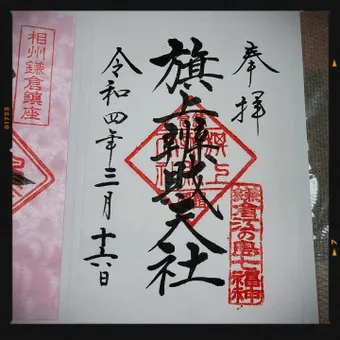 奉拝
旗上辨財天社
令和四年三月十六日
鎌倉江の島七福神
相州鎌倉鎮座